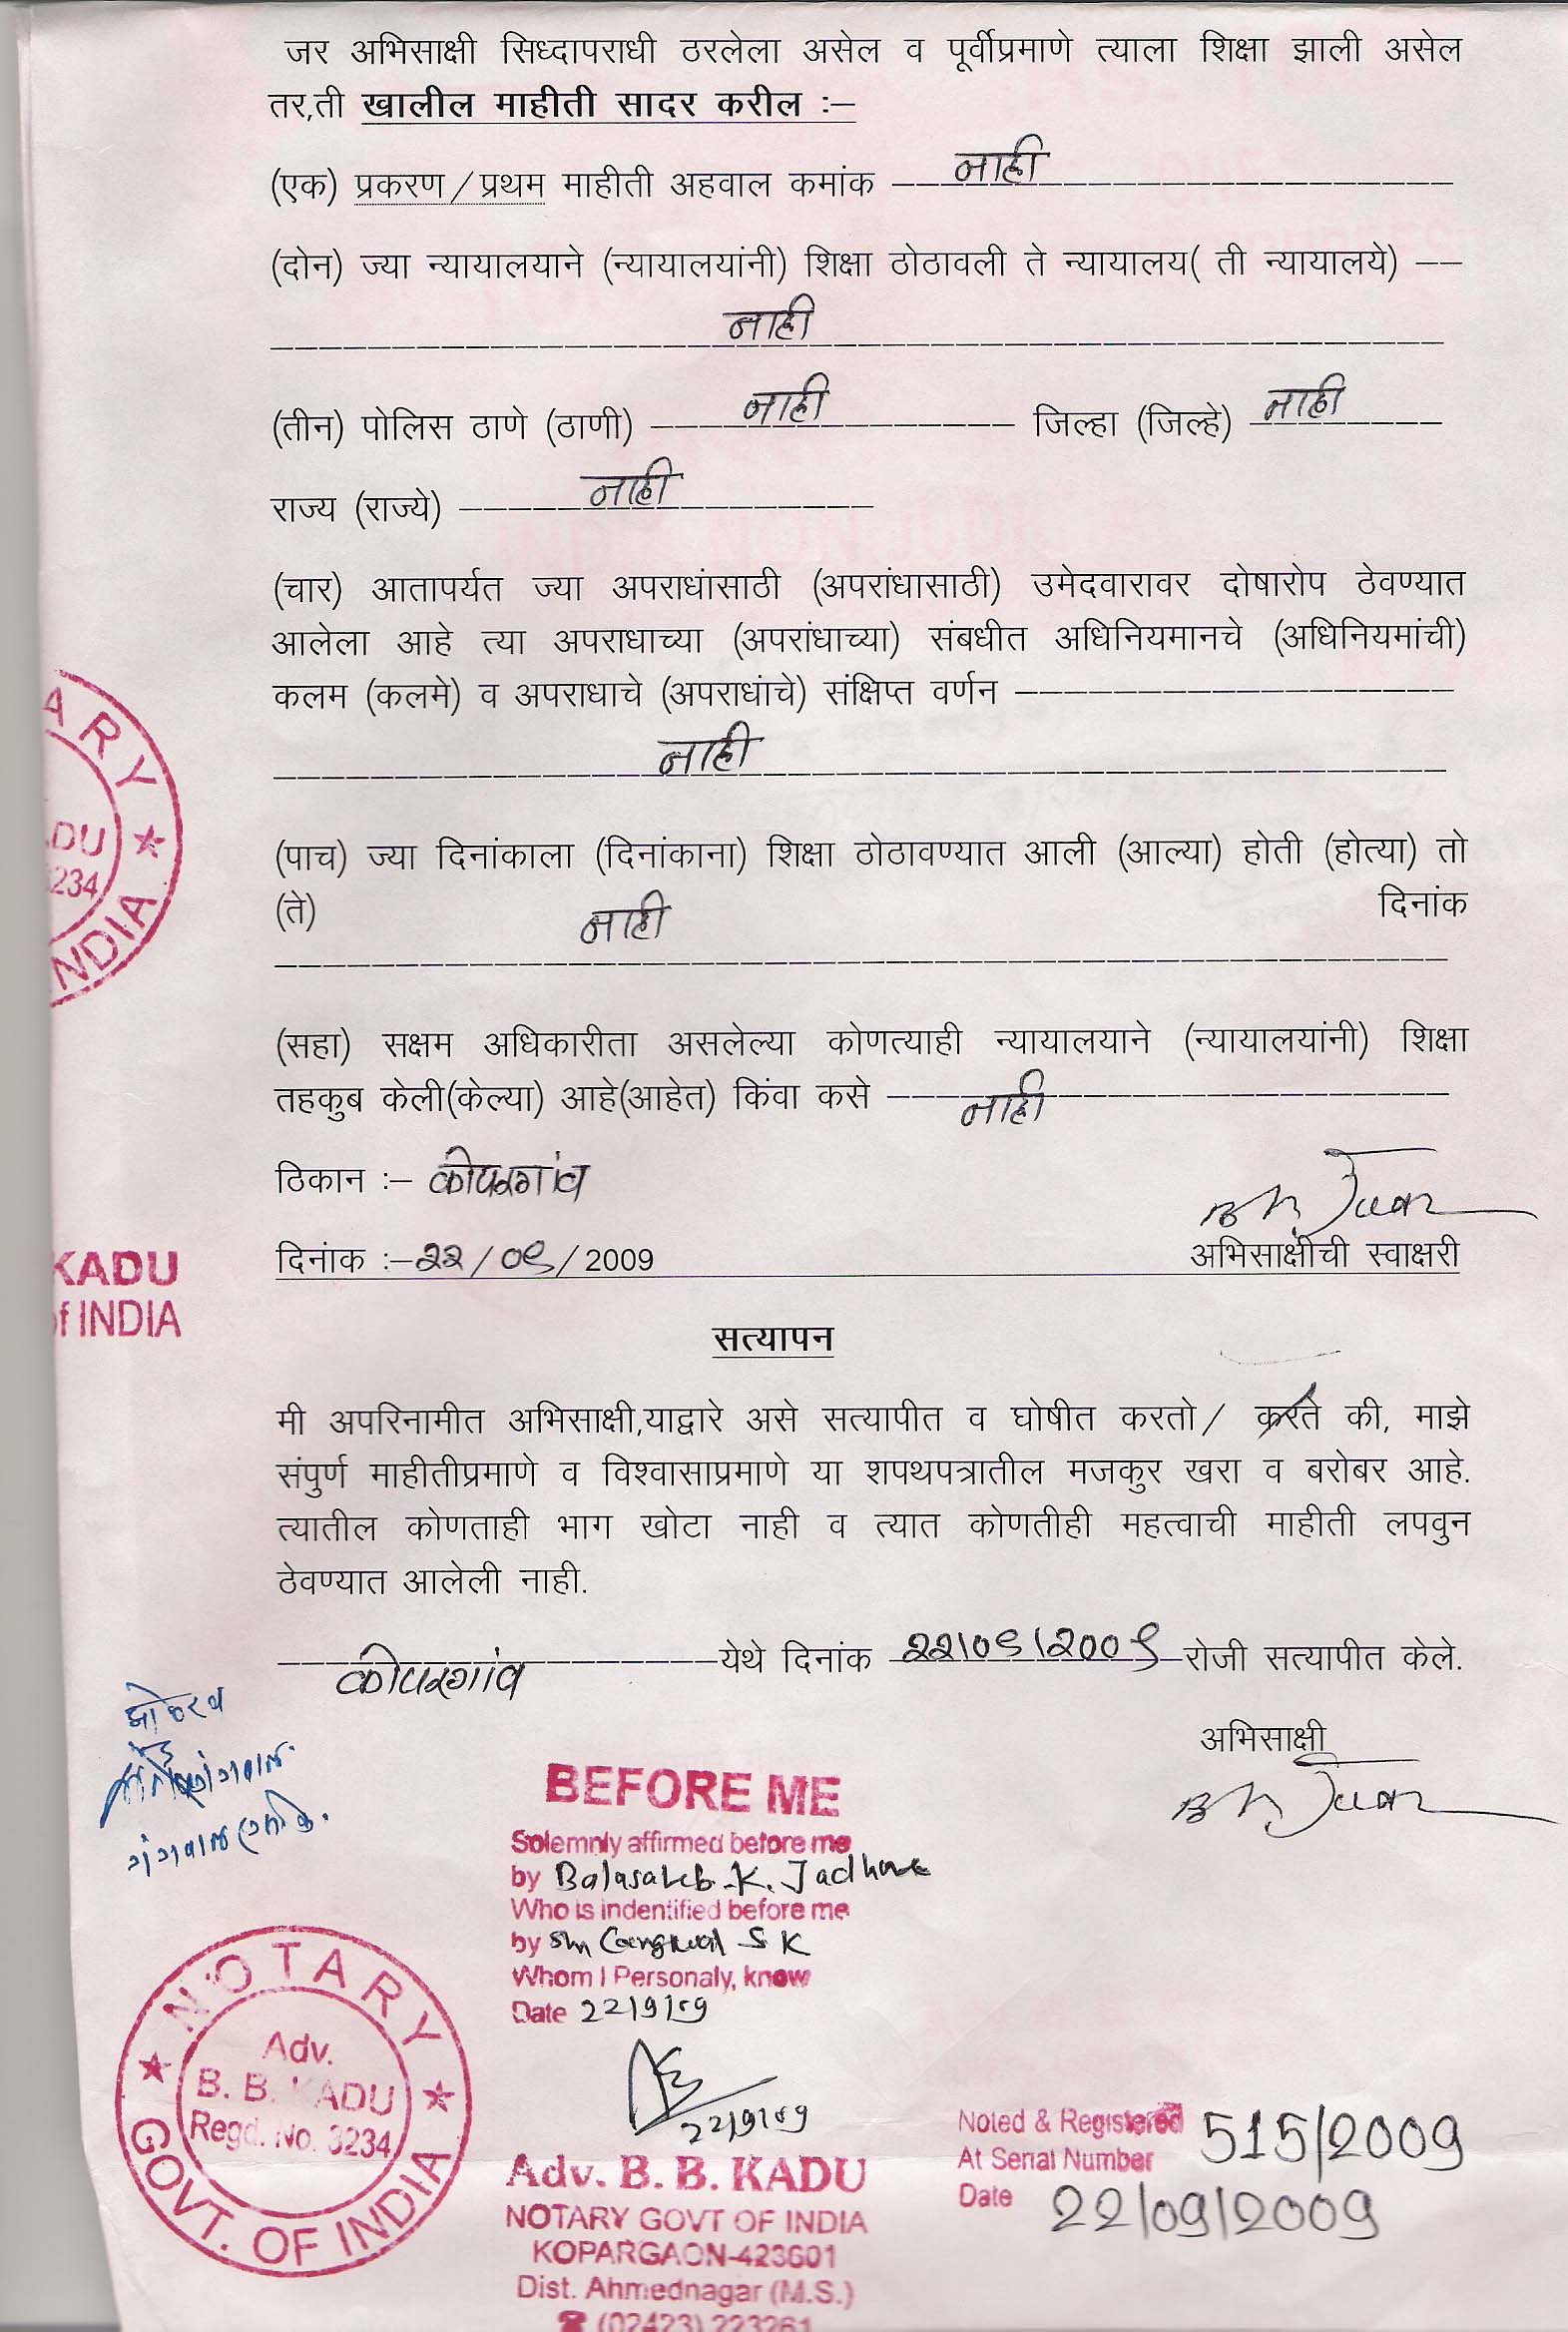 जर अभिसाक्षी सिध्दापराधी ठरलेला असेल व पूर्वीप्रमाणे त्याला शिक्षा झाली असेल
तर,ती खालील माहीती सादर करील :–
(एक) प्रकरण / प्रथम माहीती अहवाल कमांक नाही
(दोन) ज्या न्यायालयाने (न्यायालयांनी) शिक्षा ठोठावली ते न्यायालय( ती न्यायालये)
नाही
(तीन) पोलिस ठाणे (ठाणी) नाही जिल्हा (जिल्हे) नाही
राज्य (राज्ये) नाही
(चार) आतापर्यत ज्या अपराधांसाठी (अपरांधासाठी) उमेदवारावर दोषारोप ठेवण्यात
आलेला आहे त्या अपराधाच्या (अपरांधाच्या) संबधीत अधिनियमानचे (अधिनियमांची)
कलम (कलमे) व अपराधाचे (अपराधांचे) संक्षिप्त वर्णन
नाही
(पाच) ज्या दिनांकाला (दिनांकाना) शिक्षा ठोठावण्यात आली (आल्या) होती (होत्या) तो
(ते) नाही दिनांक
(सहा) सक्षम अधिकारीता असलेल्या कोणत्याही न्यायालयाने (न्यायालयांनी) शिक्षा
तहकुब केली(केल्या) आहे(आहेत) किंवा कसे नाही
ठिकान :– कोपरगांव
दिनांक :– २२/०९/2009 अभिसाक्षीची स्वाक्षरी
सत्यापन
मी अपरिनामीत अभिसाक्षी,याद्वारे असे सत्यापीत व घोषीत करतो/ करते की, माझे
संपुर्ण माहीतीप्रमाणे व विश्वासाप्रमाणे या शपथपत्रातील मजकुर खरा व बरोबर आहे.
त्यातील कोणताही भाग खोटा नाही व त्यात कोणतीही महत्वाची माहीती लपवुन
ठेवण्यात आलेली नाही.
कोपरगांव येथे दिनांक २२/०९/२००९ रोजी सत्यापीत केले.
अभिसाक्षी
BEFORE ME
Solemnly affirmed before me
by Balasaheb K. Jadhav
Who is indentified before me
by Shri Gangwal S K
Whom I Personaly, know
Date 22/9/09
22/9/09
Adv. B. B. KADU
NOTARY GOVT OF INDIA
KOPARGAON-423601
Dist. Ahmednagar (M.S.)
☎ (02423) 223261
Noted & Registered 515/2009
At Serial Number
Date 22/09/2009
NOTARY
Adv.
B. B. KADU
Regd. No. 3234
GOVT. OF INDIA
ARY
DU
234
NDIA
KADU
of INDIA